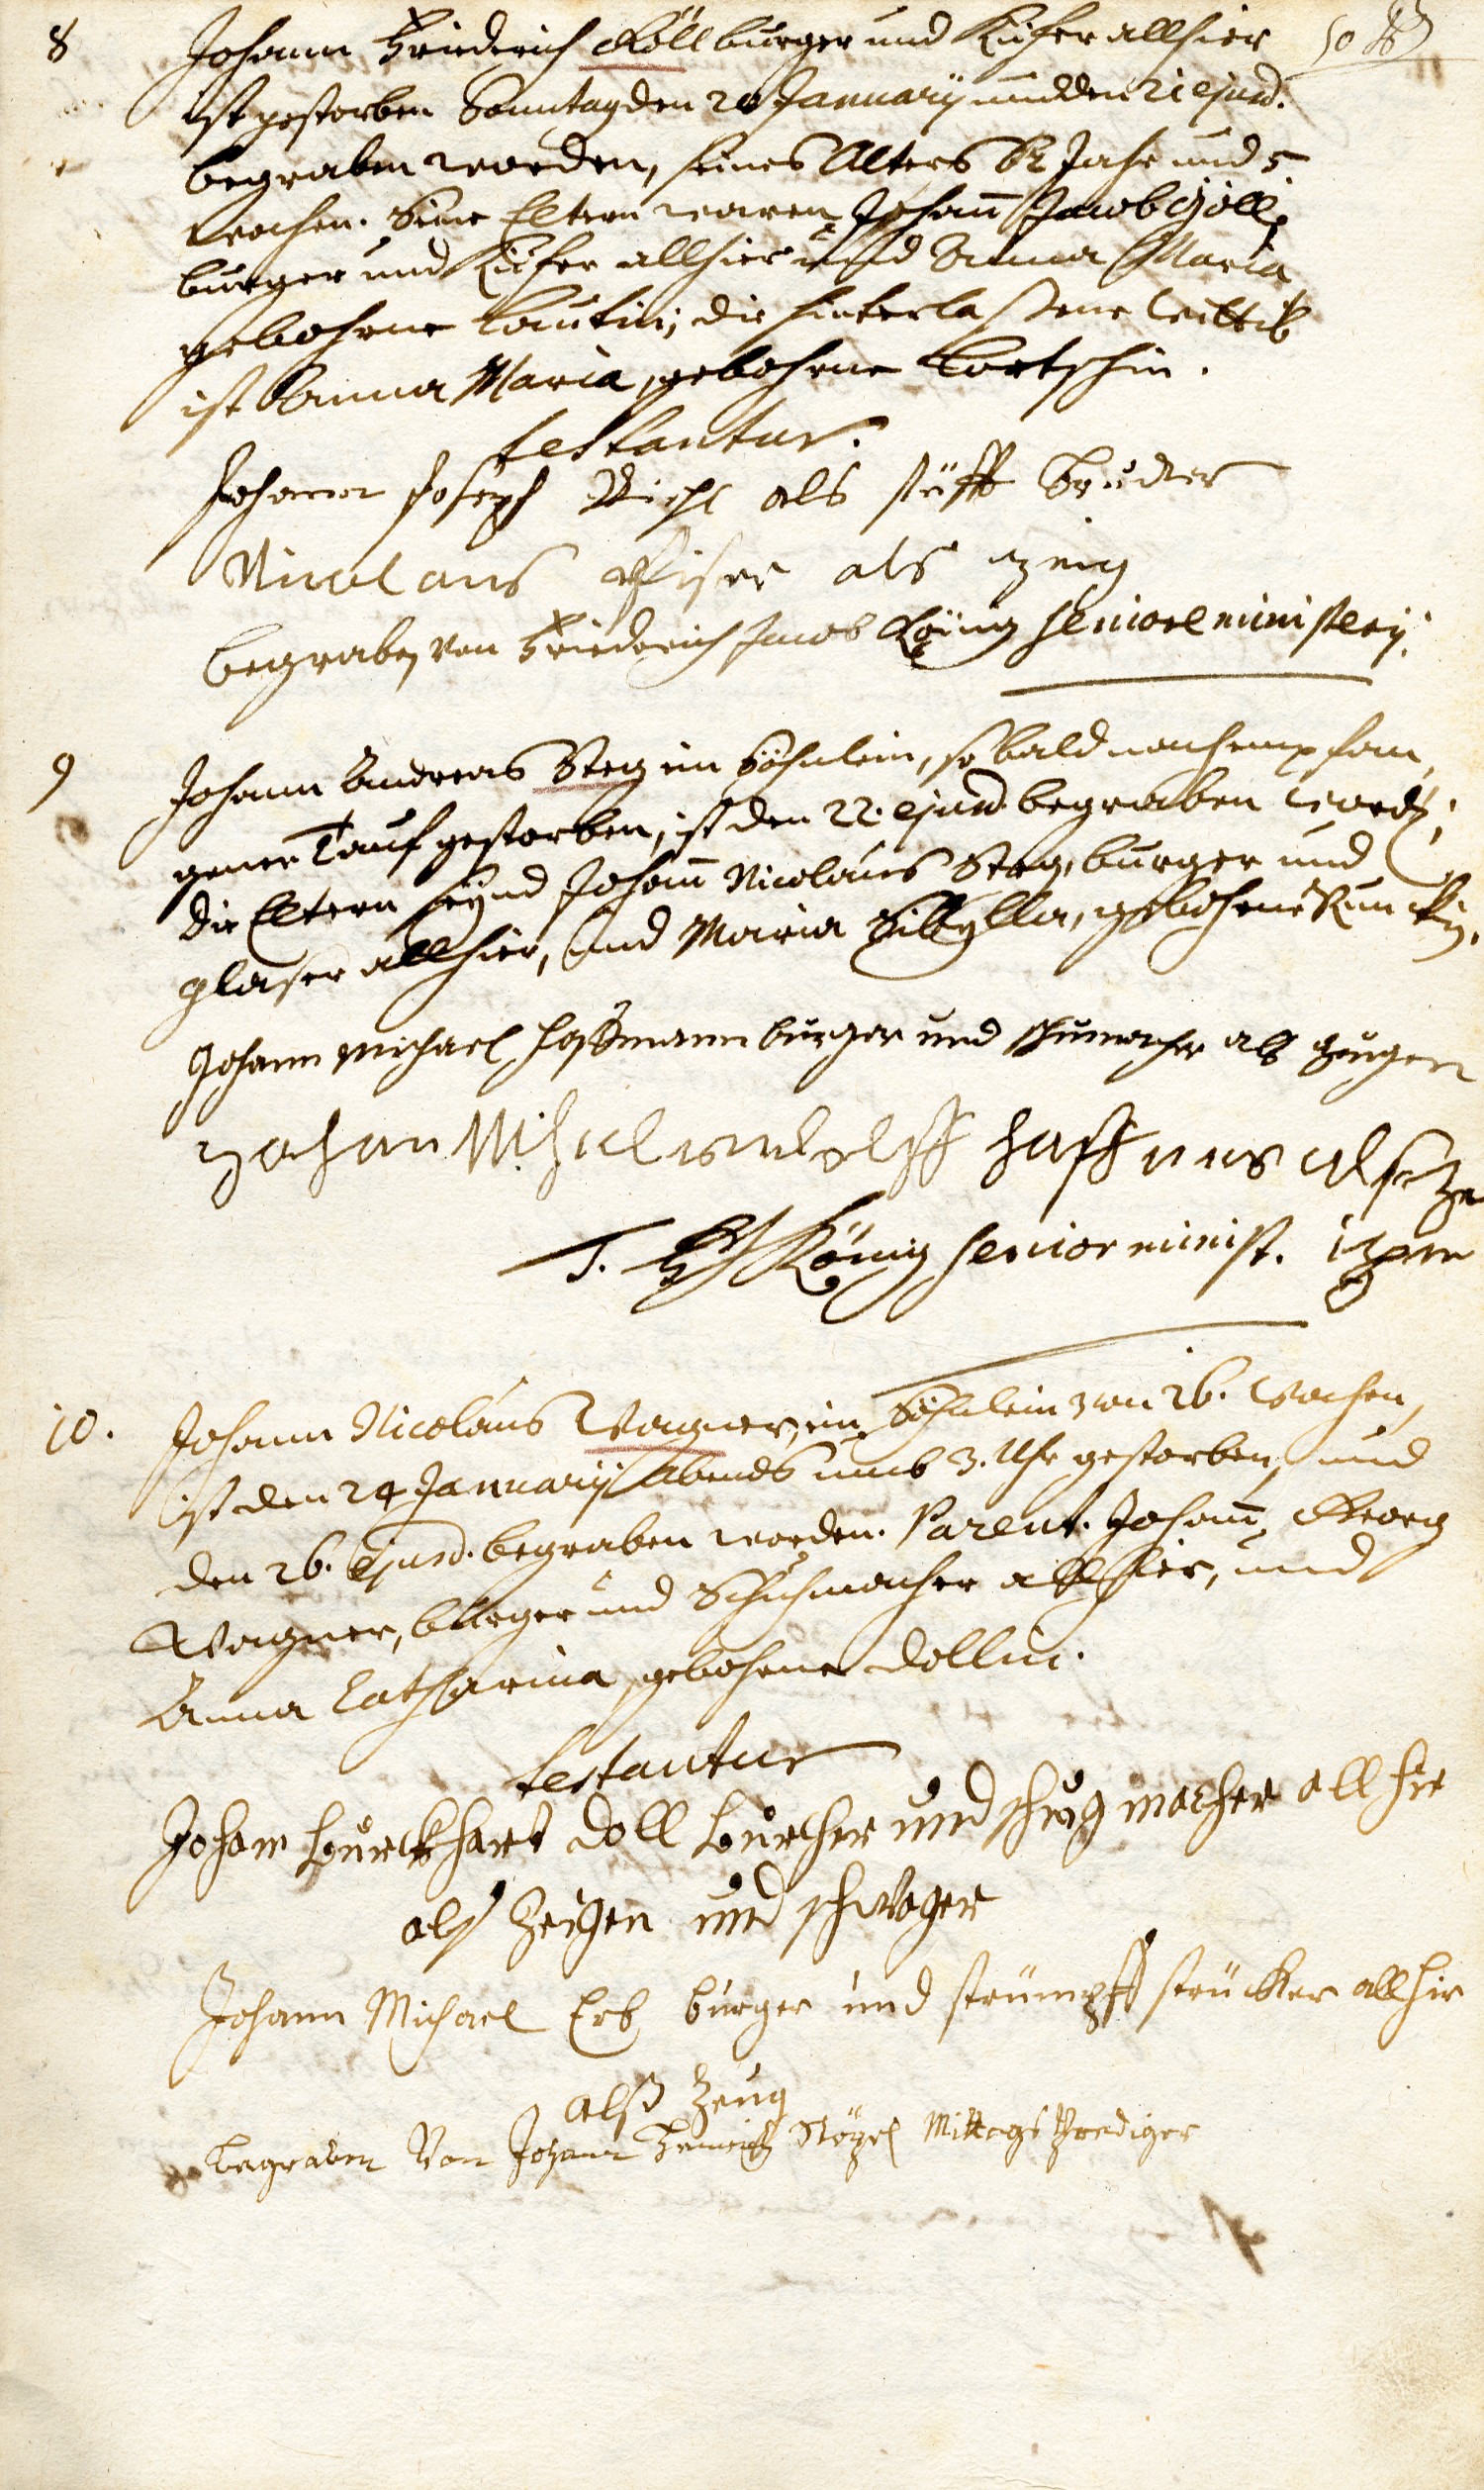 8 Johann Friederich Göll burger und Küfer allhier
ist gestorben Sonntag den 20 Januarÿ und den 21 ejusd.
begraben worden, seines Alters 62 Jahr und 5
wochen. Seine Eltern waren Johann Jacob Göll,
burger und Küfer allhier und Anna Maria
gebohrne Lautin; die hinterlaßene Wittib
ist Anna Maria, gebohrne Lortschin.
testantur.
Johann Joseph als stüff bruder
Nicolaus als zeig
begraben von Friederich Jacob König seniore ministerÿ.
9 Johann Andreas Steg ein Söhnlein, so bald nach empfan,
gener Tauf gestorben, ist den 22. ejusd. begraben word.
die Eltern seynd Johann Nicolaus Steg, burger und
glaser allhier, und Maria Sibylla, gebohrne
Johann Michael Hoffmann burger und schumacher als zeugen
Johan
J. König senior minist.
10. Johann Nicolaus Wagner, ein Söhnlein von 26. Wochen,
ist den 24 Januarij Abends umb 3. Uhr gestorben, und
den 26. Ejusd. begraben worden. Parent. Johann Georg
Wagner, burger und Schuhmacher allhier, und
Anna Catharina, gebohrne Dollin.
testantur
Johann Burckhart Doll burcher und schugmacher all hie
alß Zeigen und schwoger
Johann Michael Erb burger und strümpff stricker allhir
alß Zeug
begraben Von Johann Heinrich Stözel Mittags Prediger